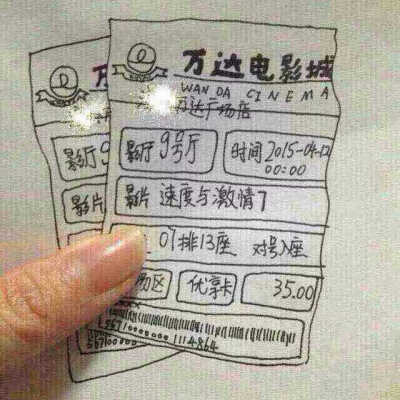 万达电影城
WANDA CINEMA
万达广场店
影厅 9号厅 时间 2015-04-12
00:00
影片 速度与激情7
07排13座 对号入座
区 优享卡 35.00
1114864
万
影厅 9
影片